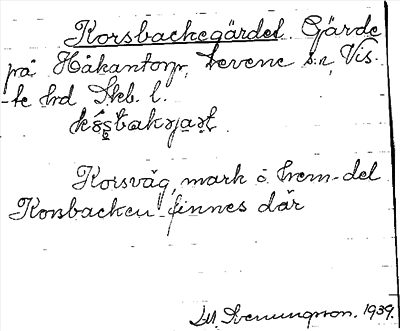 Korsbackegärdet. Gärde
på Håkantorp, Levene sn, Vis-
-te hd Skb. l.
Korsväg, mark o hem-del
Korsbacken finnes där
Svenungsson. 1939.